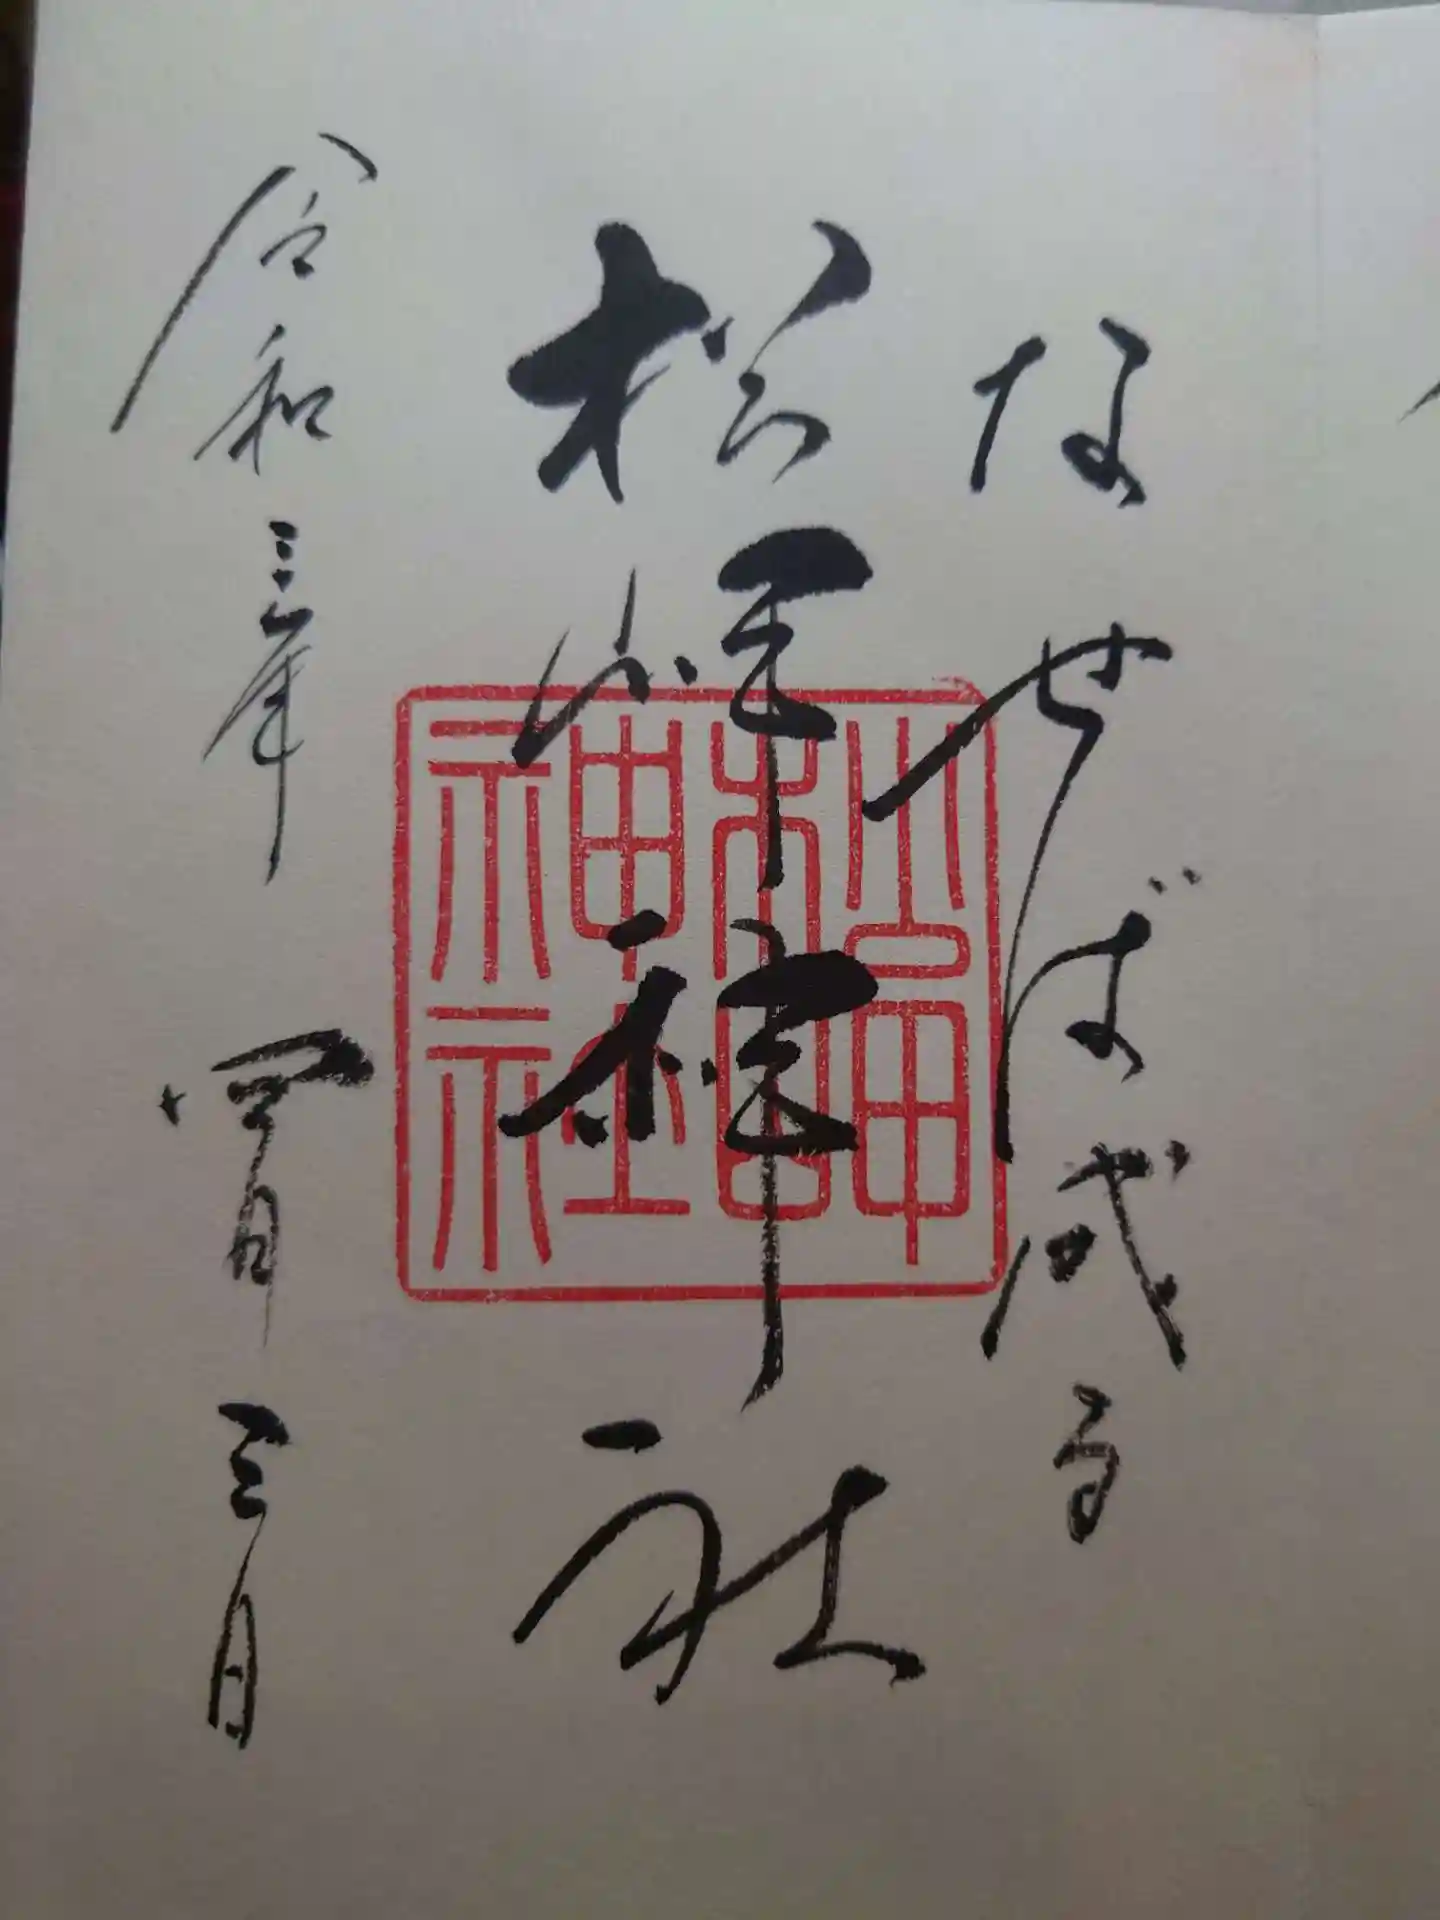 なせば成る
松岬神社
令和三年四月三日
松岬神社